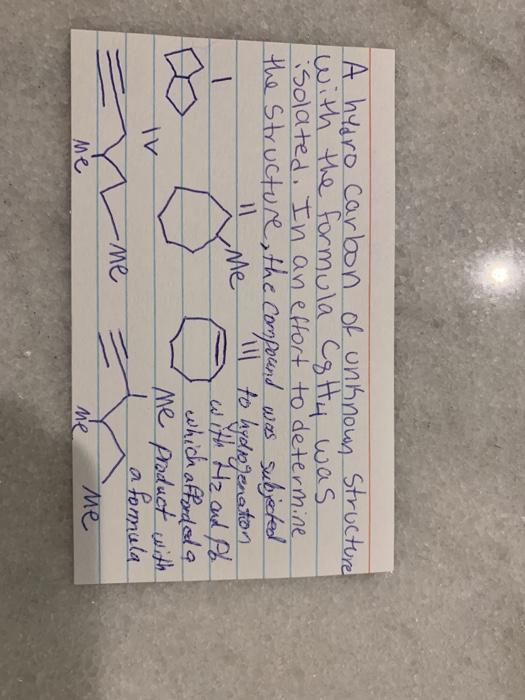 A hydrocarbon of unknown structure
with the formula C8H4 was
isolated. In an effort to determine
the structure, the compound was subjected
to hydrogenation
with H2 and Pd
which afforded a
product with
a formula
I
II
III
Me
IV
Me
Me
Me
Me
Me